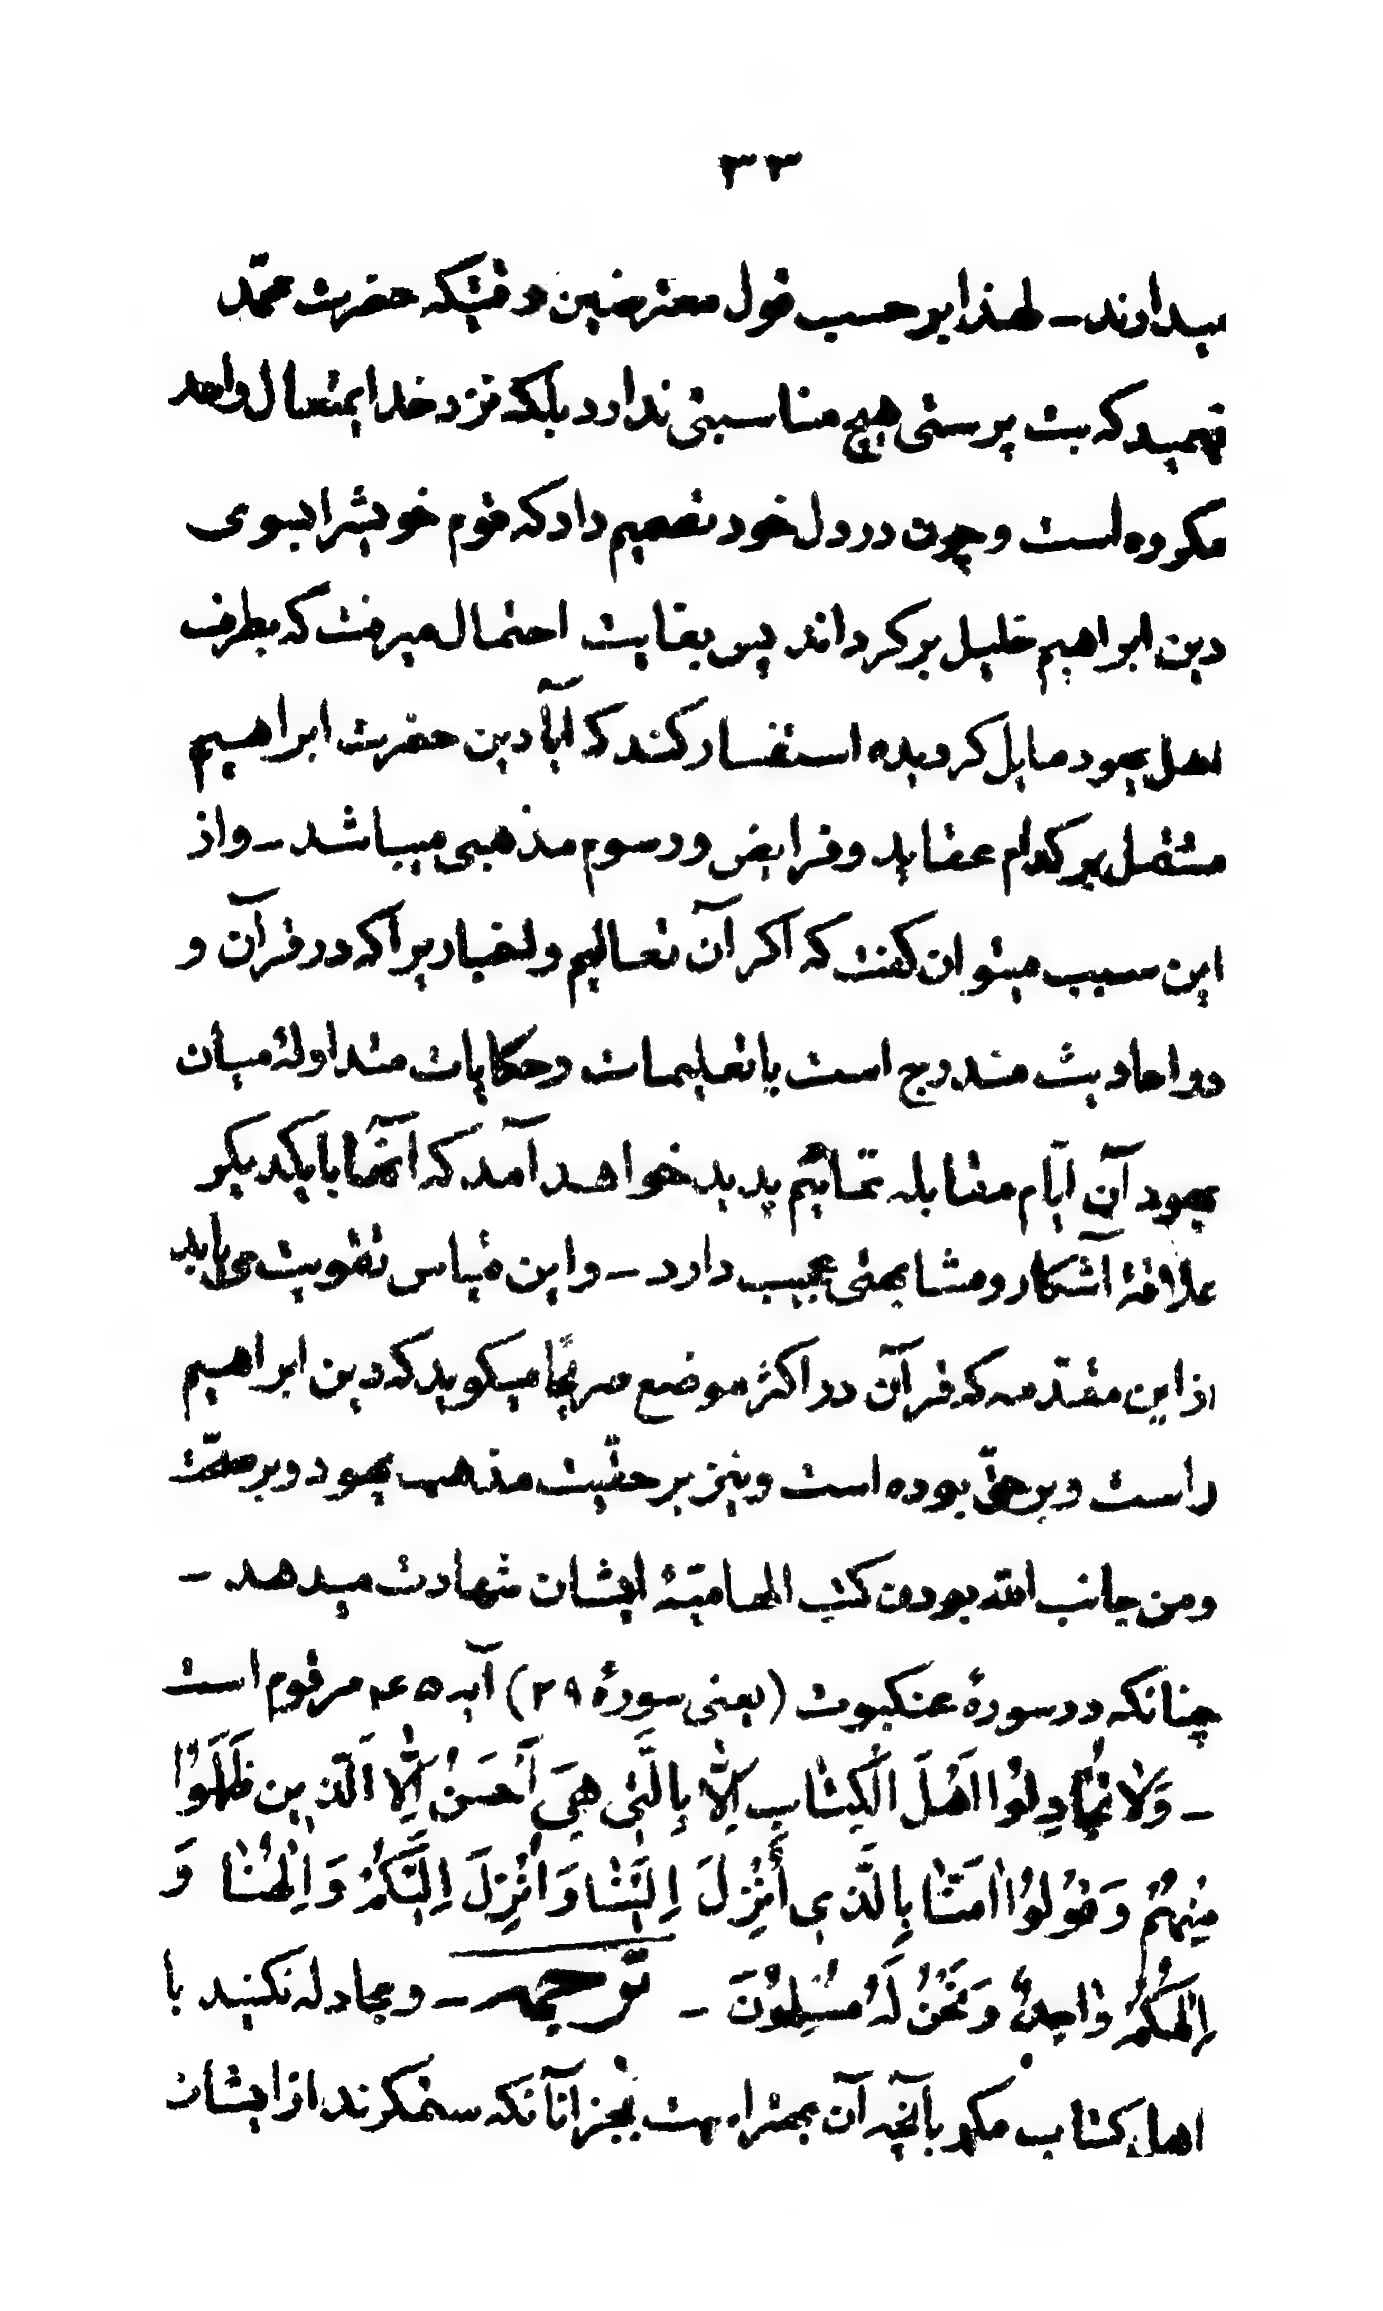 ۳۳
میدادند ــ لهذا بر حسب قول معترضین وقتیکه حضرت محمّد
فهمید که بت پرستی هیچ مناسبتی ندارد بلکه نزد خدا یمتعال واحد
مکروه است و چون در دل خود تصمیم داد که قوم خویشرا بسوی
دین ابراهیم خلیل برکرداند پس بغایت احتمال میرفت که بطرف
اهل یهود مایل کردیده استفسار کند که آیا دین حضرت ابراهیم
مشتمل بر کدام عقاید و فرایض و رسوم مذهبی میباشد ــ و از
این سبب میتوان کفت که اکر آن تعالیم و اخبار یرا که در قرآن و
در احادیث مندرج است با تعلیمات و حکایات متداولهٔ میان
یهود آن ایّام مقابله نمائیم پدید خواهد آمد که آنها با یکدیکر
علاقهٔ آشکار و مشابهتی عجیب دارد ــ و این قیاس تقویت می یابد
از این مقدّمه که قرآن در اکثر موضع صریحًا میکوید که دین ابراهیم
راست و بر حقّ بوده است و نیز بر حقّیت مذهب یهود و بر صحّت
و من جانب الله بودن کتب الهامیّهٔ ایشان شهادت میدهد ــ
چنانکه در سورهٔ عنکبوت (یعنی سورهٔ ۲۹) آیه ۴۵ مرقوم است
ــ وَلَا تُجَادِلُوا اَهْلَ الْکِتَابِ اِلَّا بِالَّتِی هِیَ اَحْسَنُ اِلَّا الَّذِینَ ظَلَمُوْا
مِنْهُمْ وَ قُوْلُوْا امَنَّا بِالَّذِی أُنْزِلَ اِلَیْنَا وَ اُنْزِلَ اِلَیْکُمْ وَ اِلٰهُنَا وَ
اِلٰهُکُمْ وَاحِدٌ وَ نَحْنُ لَهُ مُسْلِمُوْنَ ــ ترجمه ــ و مجادله نکنید با
اهل کتاب مکر بآنچه آن بهتر است بجز آنانکه ستمکرند از ایشان